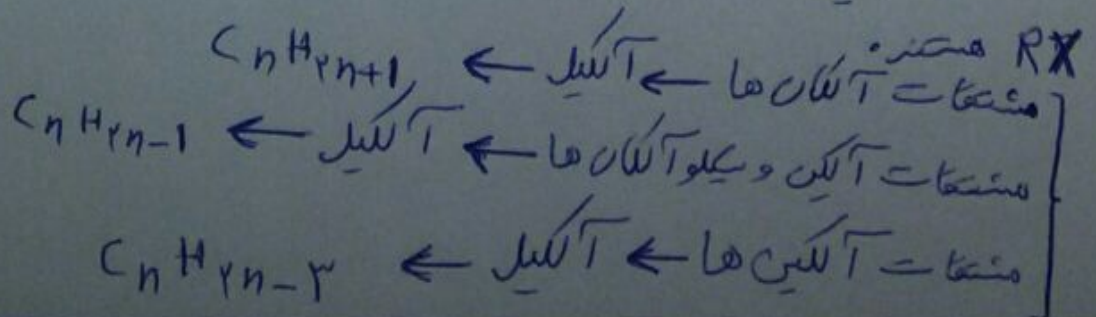 RX هستند.
مشتقات آلکان ها ← آلکیل ← CnH۲n+1
مشتقات آلکن و سیکلوآلکان ها ← آلکیل ← CnH۲n-1
مشتقات آلکین ها ← آلکیل ← CnH۲n-۳